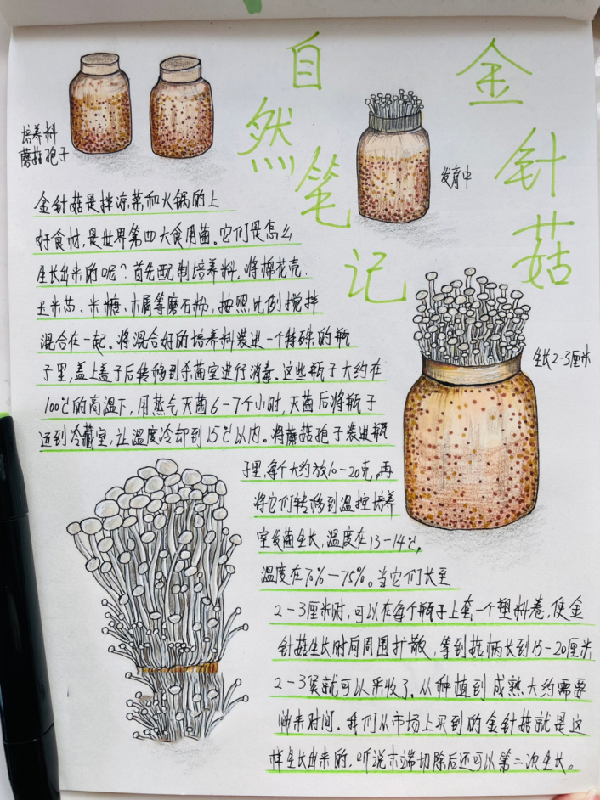 自然笔记
金针菇
培养料
蘑菇孢子
发育中
生长2-3厘米
金针菇是拌凉菜和火锅的上
好食材,是世界第四大食用菌。它们是怎么
生长出来的呢?首先配制培养料,将棉花壳、
玉米芯、米糠、木屑等磨石粉,按照比例搅拌
混合在一起。将混合好的培养料装进一个特殊的瓶
子里,盖上盖子后转移到杀菌室进行消毒。这些瓶子大约在
100℃的高温下,用蒸气灭菌6-7个小时,灭菌后将瓶子
运到冷藏室,让温度冷却到15℃以内。将蘑菇孢子装进瓶
子里,每个大约放10-20克,再
将它们转移到温控培养
室发菌生长,温度在13-14℃,
温度在70%-75%。当它们长至
2-3厘米时,可以在每个瓶子上套一个塑料卷,使金
针菇生长时向周围扩散,等到菇柄长到15-20厘米
2-3英就可以采收了。从种植到成熟大约需要
时间。我们从市场上买到的金针菇就是这
样生长出来的,听说末端切除后还可以第二次生长。